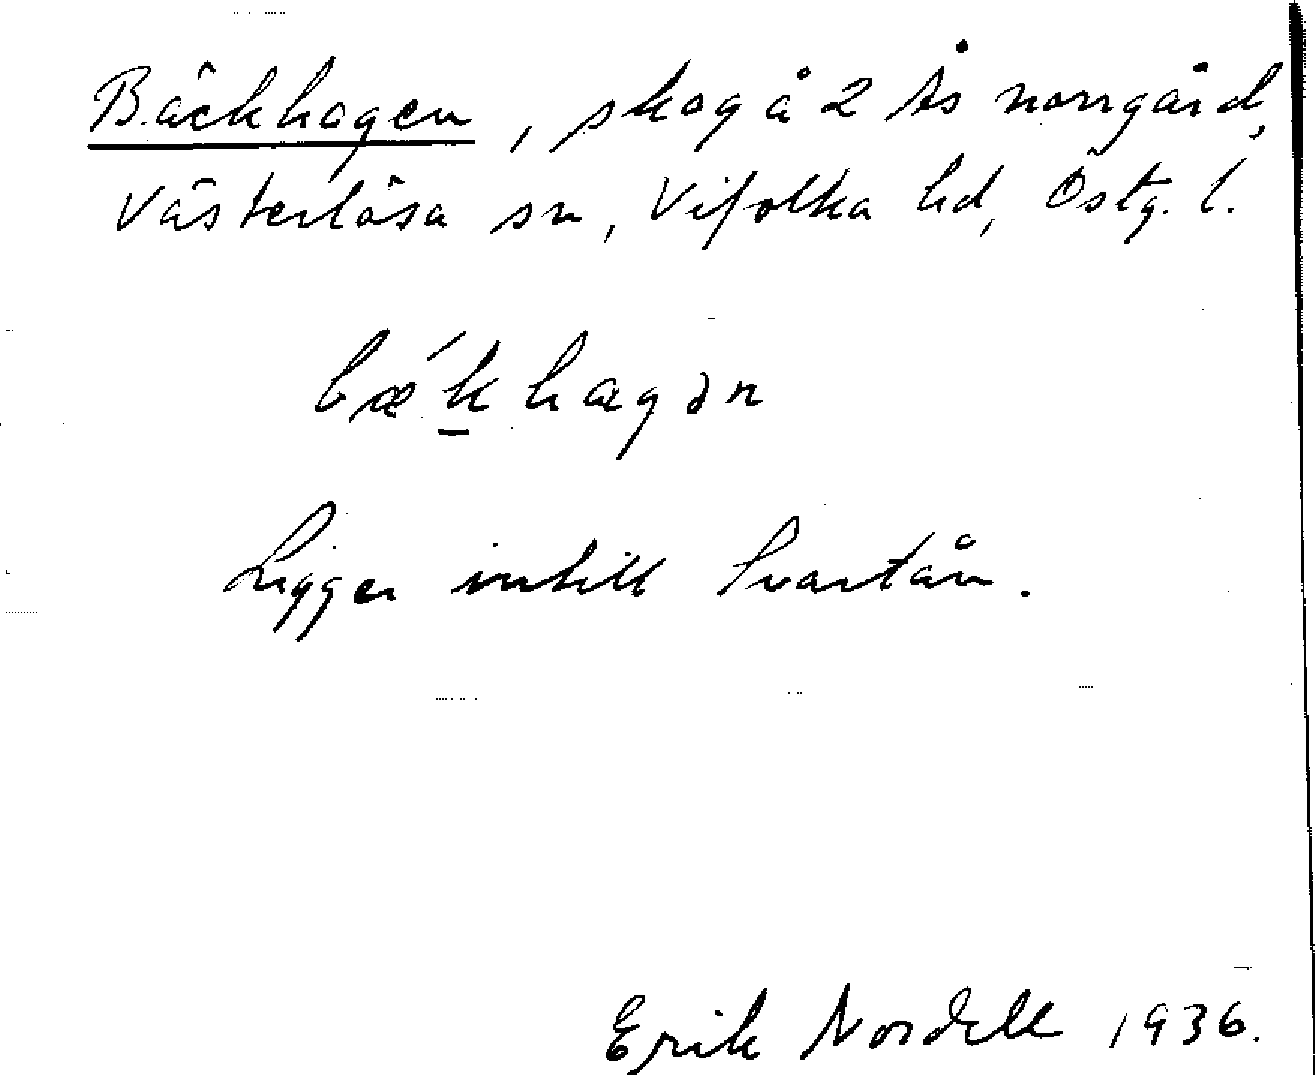 Bäckhagen, skog å 2 Ås norrgård,
Västerlösa sn, Vifolka hd, Östg. l.
bæ´k̲hagən
Ligger intill Svartån.
Erik Nordell 1936.